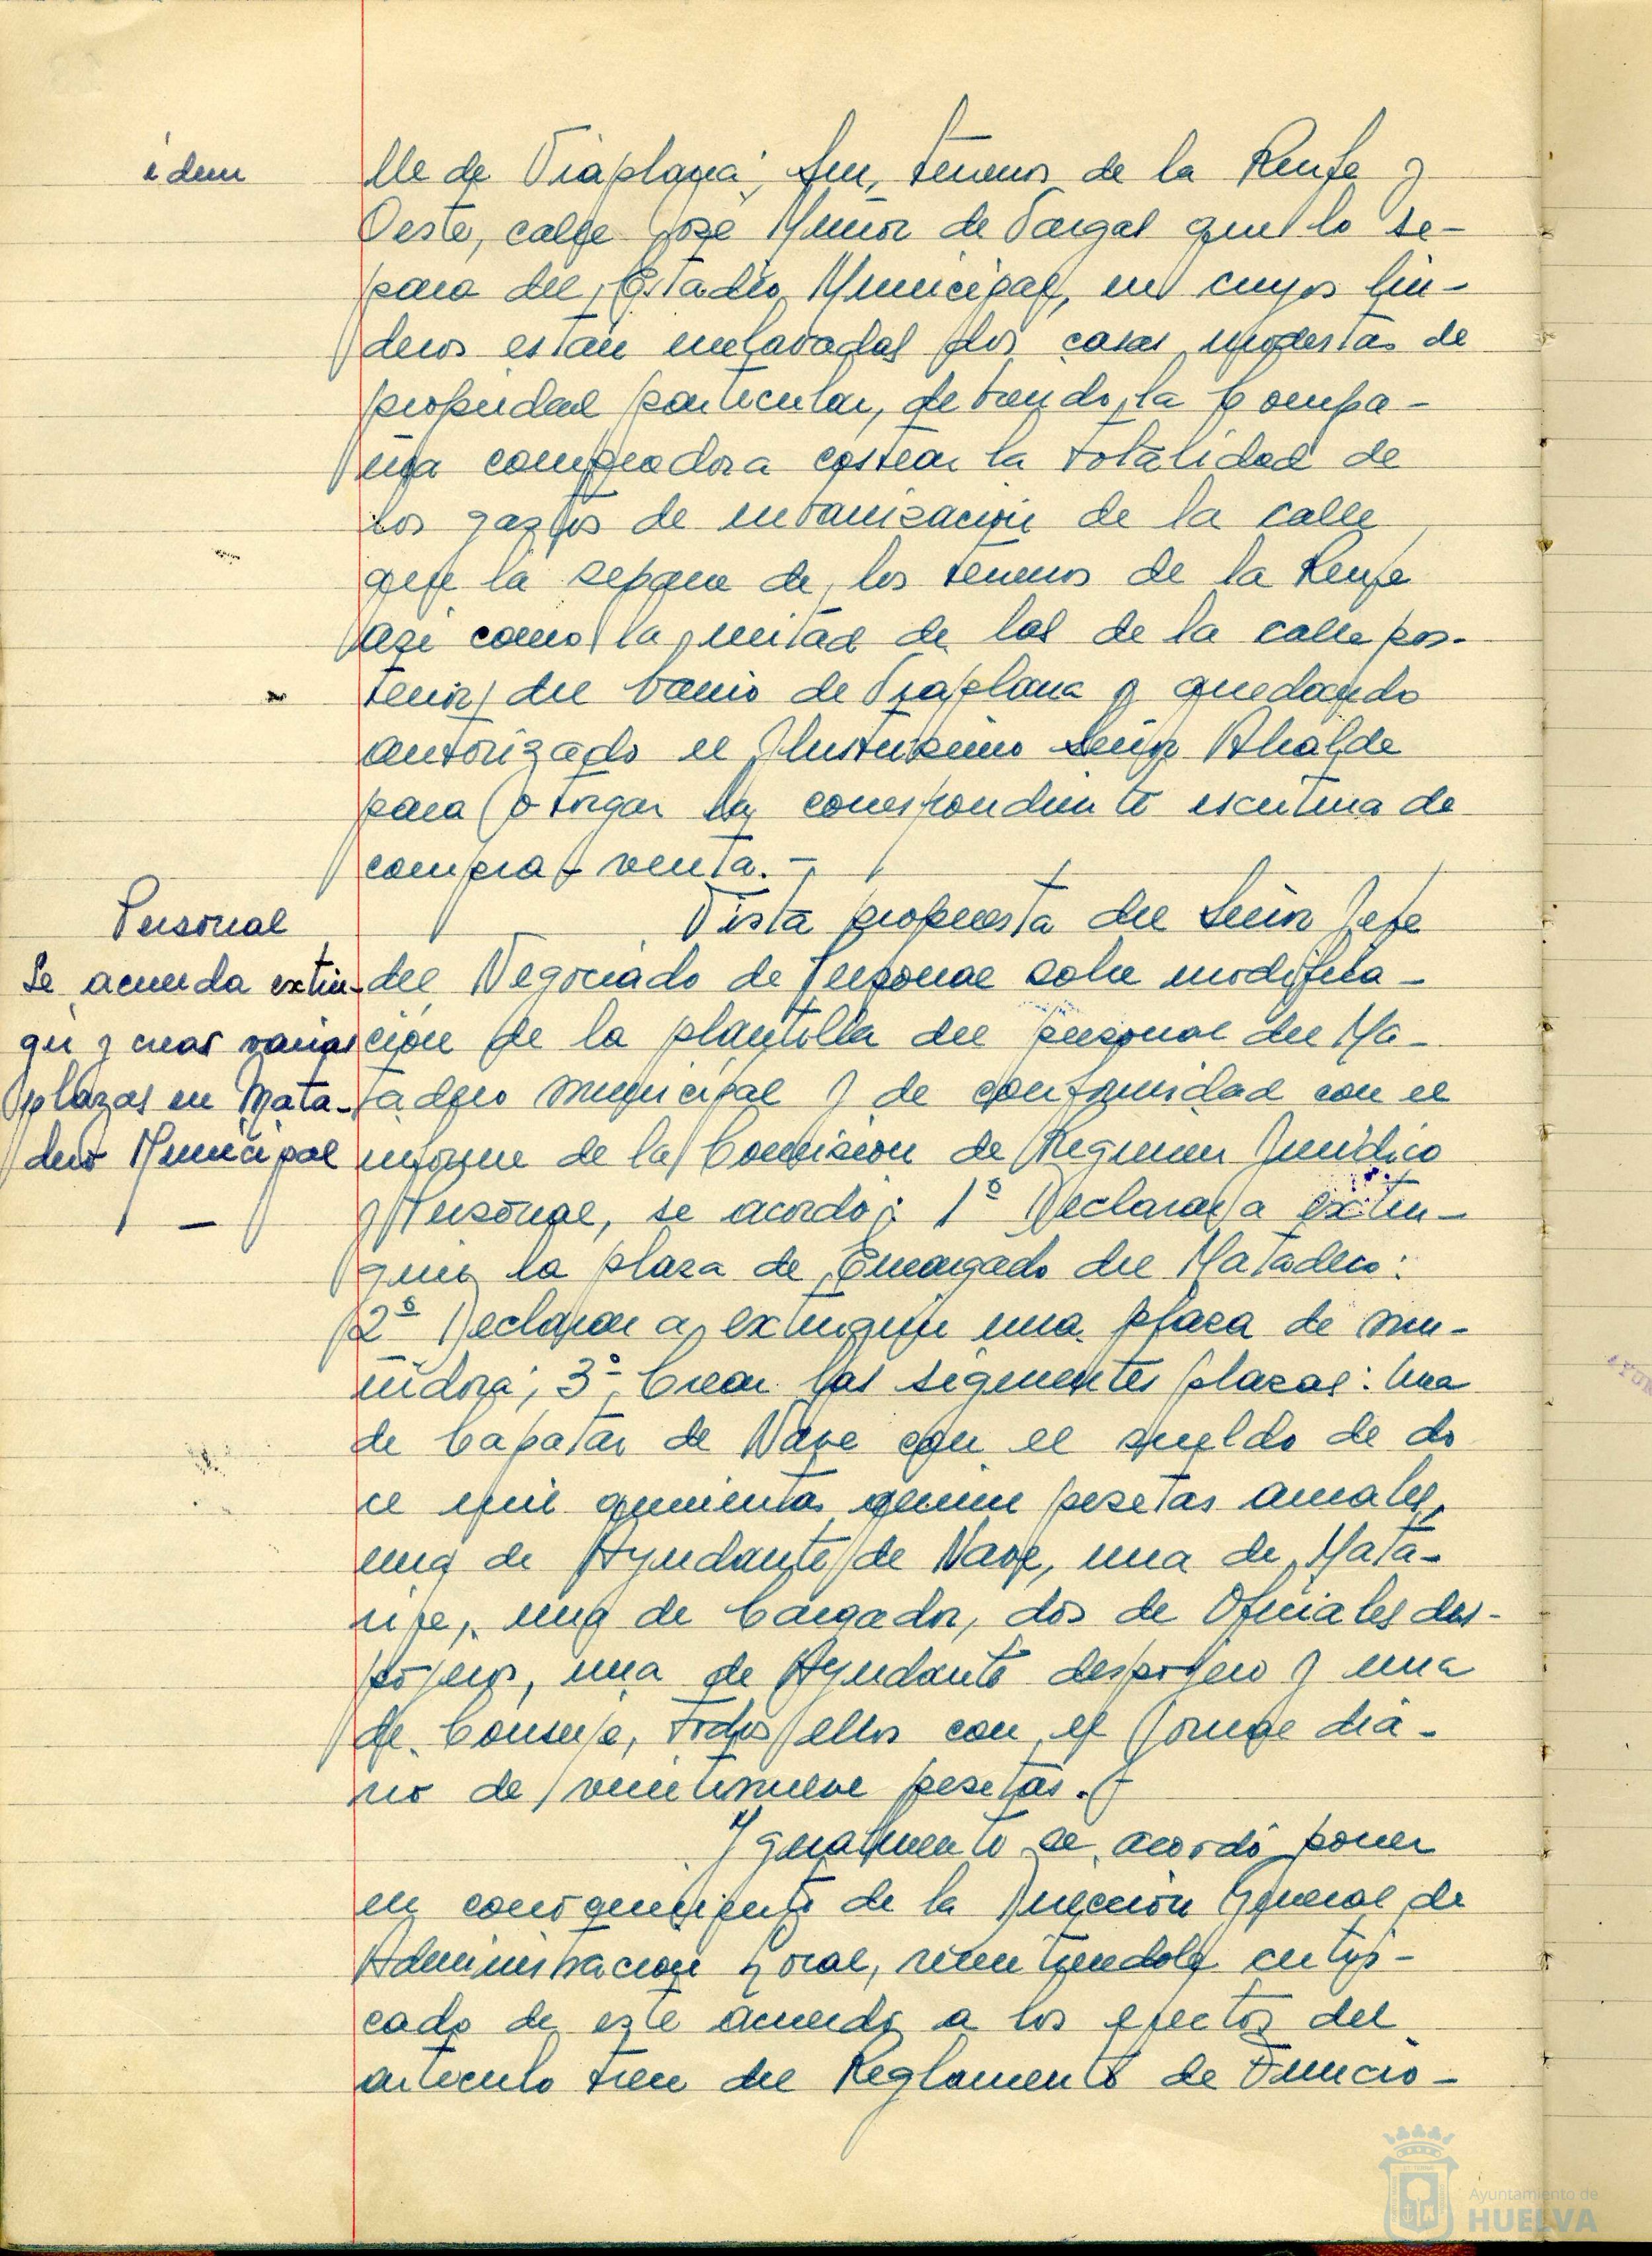 idem
lle de Viaplana; Sur, terrenos de la Renfe y
Oeste, calle José Muñoz de Vargas que lo se-
para del Estadio Municipal, en cuyos lin-
deros están enclavadas dos casas modestas de
propiedad particular, debiendo la Compa-
ñía compradora costear la totalidad de
los gastos de urbanización de la calle
que la separa de los terrenos de la Renfe
así como la mitad de las de la calle pos-
terior del barrio de Viaplana y quedando
autorizado el Ilustrísimo Señor Alcalde
para otorgar la correspondiente escritura de
compra-venta.-
Personal
Se acuerda extin-
guir y crear varias
plazas en Mata-
dero Municipal
Vista propuesta del Señor Jefe
del Negociado de Personal sobre modifica-
ción de la plantilla del personal del Ma-
tadero municipal y de conformidad con el
informe de la Comisión de Regimen Jurídico
y Personal, se acordó: 1º Declarar a extin-
guir la plaza de Encargado del Matadero:
2º Declarar a extinguir una plaza de mu-
ñidora; 3º, Crear las siguientes plazas: Una
de Capataz de Nave con el sueldo de do
ce mil quinientas pesetas anuales,
una de Ayudante de Nave, una de Mata-
rife, una de Cargador, dos de Oficiales des-
pojeros, una de Ayudante despojero y una
de Conserje, todos ellos con el jornal dia-
rio de veintinueve pesetas.-
Igualmente se acordó poner
en conocimiento de la Dirección General de
Administración Local, remitiendole certifi-
cado de este acuerdo a los efectos del
artículo trece del Reglamento de Funcio-
Ayuntamiento de
HUELVA